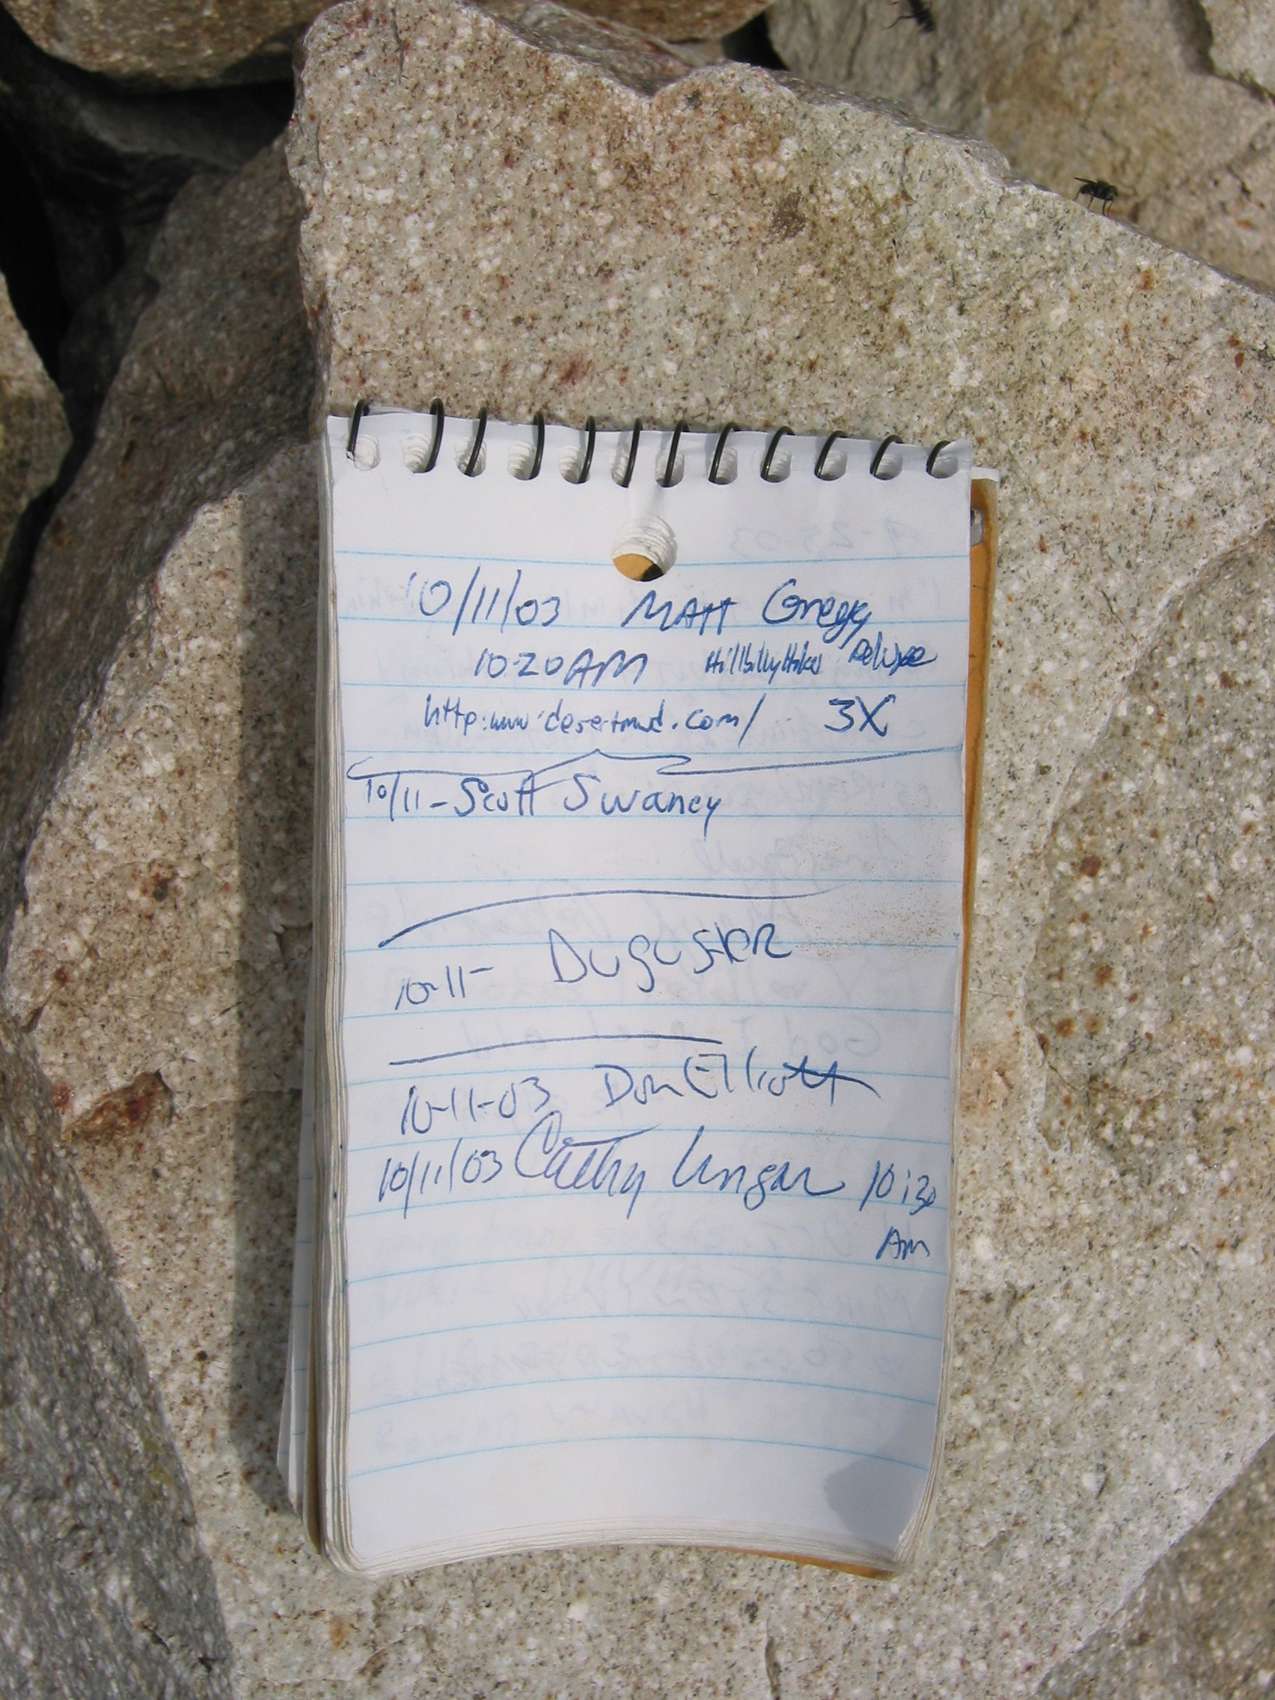 10/11/03 MATT Gregg
10:20 AM Hillbilly Hikes Deluxe
http:www.desertmud.com/ 3X
10/11 - Scott Swaney
10-11- Duguster
10-11-03 Don Elliott
10/11/03 Cathy Ungar 10:30
Am